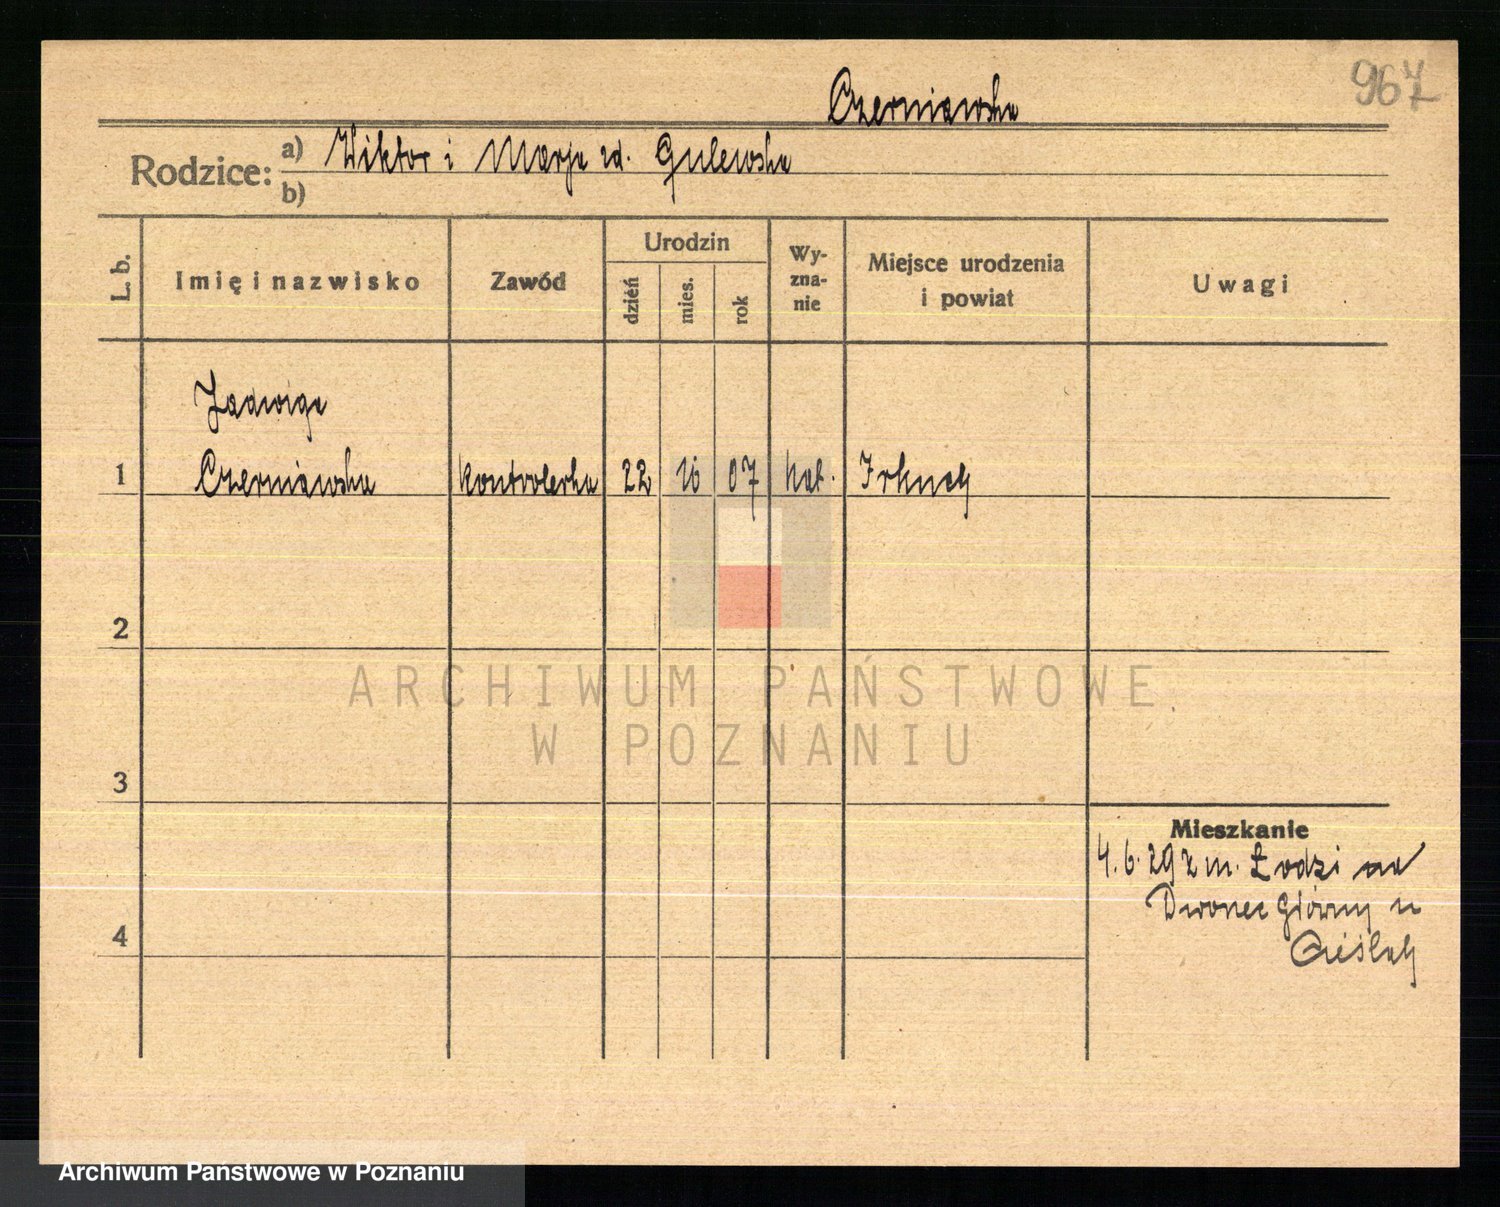 967
Czerniawska
Rodzice: a) Wiktor i Marja zd. Gulewska
b)
L. b. Imię i nazwisko Zawód Urodzin dzień mies. rok Wyznanie Miejsce urodzenia i powiat Uwagi
Jadwiga
1 Czerniawska kontrolerka 22 10 07 kat. Irkuck
2
3
4
Mieszkanie
4.6.29 z m. Łodzi na
Dworzec Główny u
Cieślak
ARCHIWUM PAŃSTWOWE
W POZNANIU
Archiwum Państwowe w Poznaniu